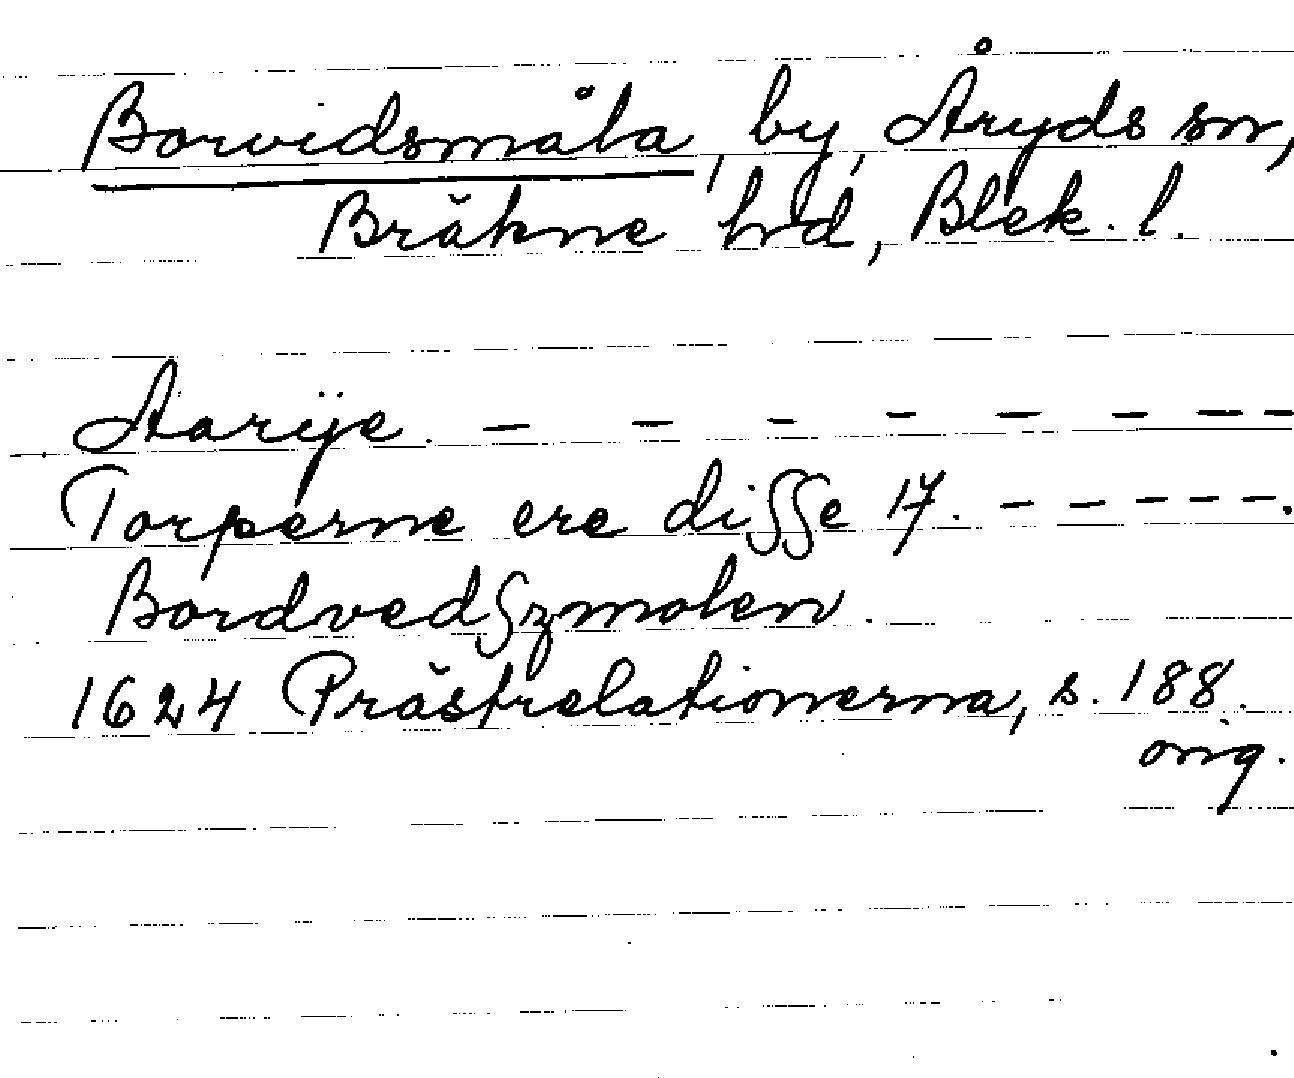 Borvidsmåla, by, Åryds sn,
Bräkne hd, Blek. l.
Aarÿe. - - - - - - - -
Torperne ere diſſe 17. - - - - - .
Bordvedſzmolen.
1624 Prästrelationerna, s. 188.
orig.